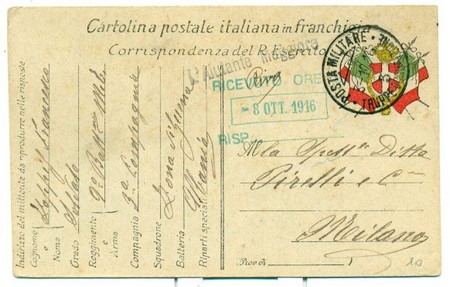 Cartolina postale italiana in franchigia
Corrispondenza del R. Esercito
L'Aiutante Maggiore
RICEVUTO ORE
- 8 OTT. 1916
RISP.
POSTA MILITARE
TRUPPE
Alla Spett. Ditta
Pirelli e C.
Milano
Prov. di
Indirizzo del mittente da riprodurre nelle risposte
Cognome e Nome
Grado Soldato
Reggimento e Arma 9°
Compagnia 3ª Compagnia
Squadrone Zona di Guerra
Batteria Albania
Riparti speciali